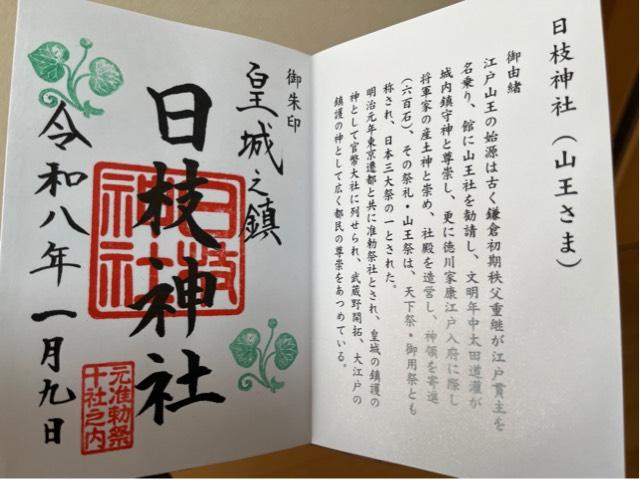 日枝神社(山王さま)
御由緒
江戸山王の始源は古く鎌倉初期秩父重継が江戸貫主を
名乗り、館に山王社を勧請し、文明年中太田道灌が
城内鎮守神と尊崇し、更に徳川家康江戸入府に際し
将軍家の産土神と崇め、社殿を造営し、神領を寄進
(六百石)、その祭礼・山王祭は、天下祭・御用祭とも
称され、日本三大祭の一とされた。
明治元年東京遷都と共に准勅祭社とされ、皇城の鎮護の
神として官幣大社に列せられ、武蔵野開拓、大江戸の
鎮護の神として広く都民の尊崇をあつめている。
御朱印
皇城之鎮
日枝神社
日枝
神社
元准勅祭
十社之内
令和八年一月九日